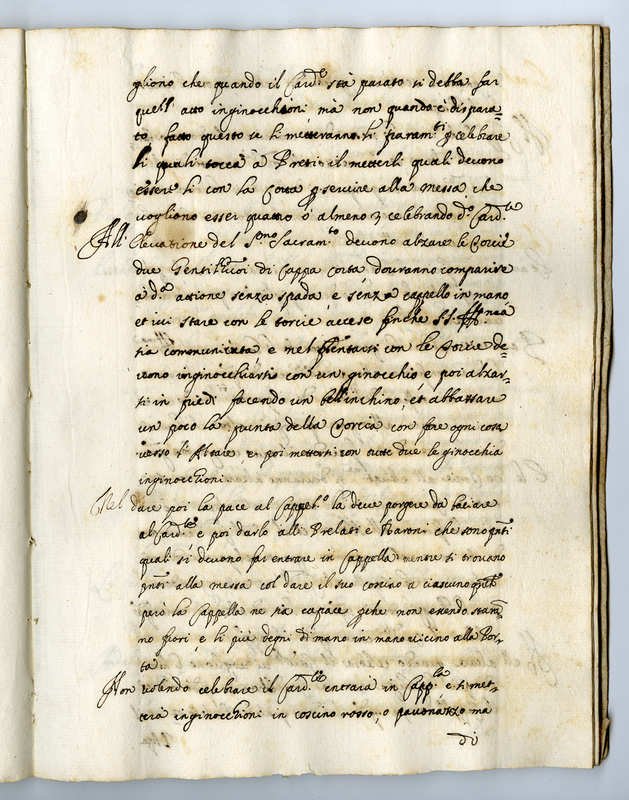 gliono che quando il Card.le stà parato si debba far
quell' atto inginocchioni, mà non quando è dispara=
to. fatto questo se li metteranno li param.ti p celebrare
li quali tocca à Preti il metterli quali devono
essere li con la Cotta p servire alla messa, che
vogliono esser quattro ò almeno 3 celebrando d.o Card.le
All' elevatione del S.mo Sacram.to devono alzare le Torcie
due Gentilhuomini di Cappa corta, dovranno comparire
à d.a attione senza spada, e senza cappello in mano
et ivi stare con le torcie accese finche S.S.
sia communicata, e nel p̃sentarsi con le Torcie de=
vono inginocchiarsi con un ginocchio e poi alzar=
si in piedi facendo un bell'inchino, et abbassare
un poco la punta della Torcia con fare ogni cosa
verso l'Altare, e poi mettersi con tutte due le ginocchia
inginocchioni.
Nel dare poi la pace al Cappell.o la deve porgere da baciare
al Card.le e poi darlo alli Prelati e Baroni che sono p̃nti
quali si devono far entrare in Cappella mentre si trovano
p̃nti alla messa col dare il suo coscino a ciascuno
però la Cappella ne sia capace p̃che non essendo staran=
no fuori, e li più degni di mano in mano vicino alla Por=
ta.
Non volendo celebrare il Card.le entrarà in Capp.la e si met=
terà inginocchioni in coscino rosso, o pavonazzo ma
di